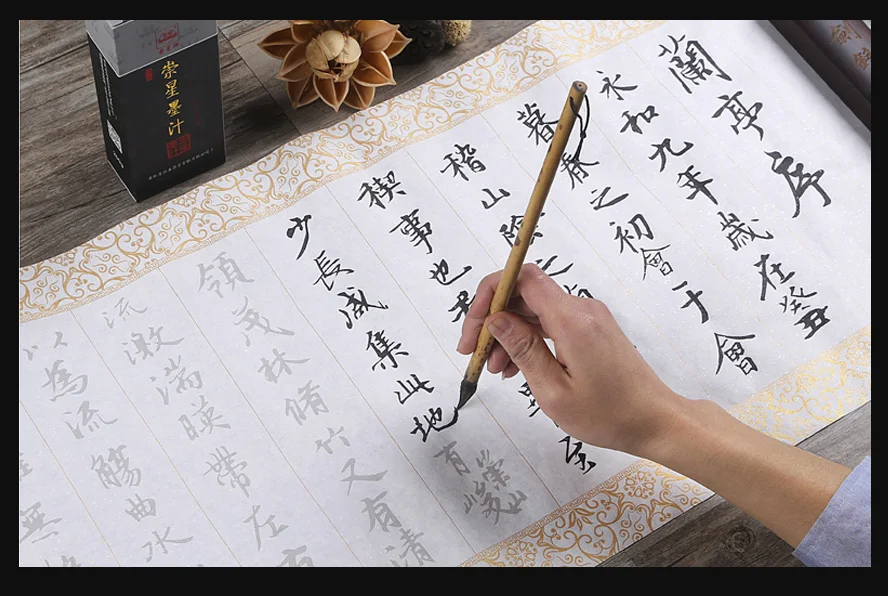 蘭亭序
永和九年歲在癸丑
暮春之初會于會
稽山陰之
禊事也
少長咸集此地有崇山峻
領茂林脩竹又有清
流激湍暎帶左右
以為流觴曲水
無
崇星墨汁